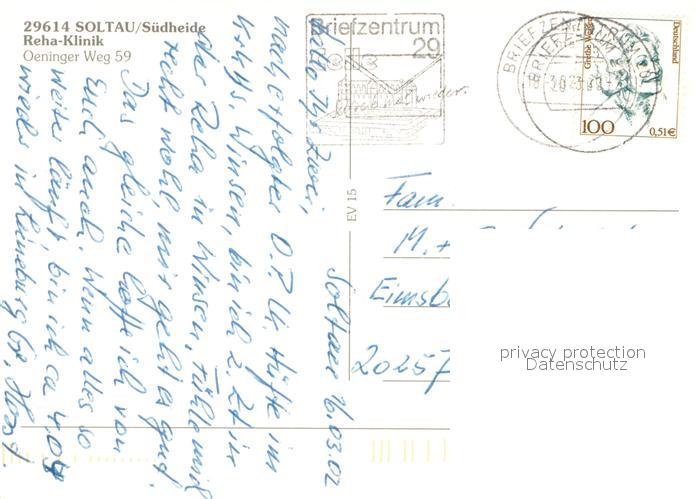 29614 SOLTAU/Südheide
Reha-Klinik
Oeninger Weg 59
Briefzentrum
29
mal wieder.
Deutschland
100
0,51€
EV 15
Soltau 16.03.02
Hallo Ihr Zwei,
nach erfolgter O.P. li. Hüfte im
Winsen, bin ich z. Zt in
der Reha in Winsen, fühle mich
recht wohl, mir geht es gut!
Das gleiche hoffe ich von
Euch auch. Wenn alles so
weiter läuft, bin ich ca
wieder in Lüneburg
Fam.
M. +
Eimsb
20257
privacy protection
Datenschutz